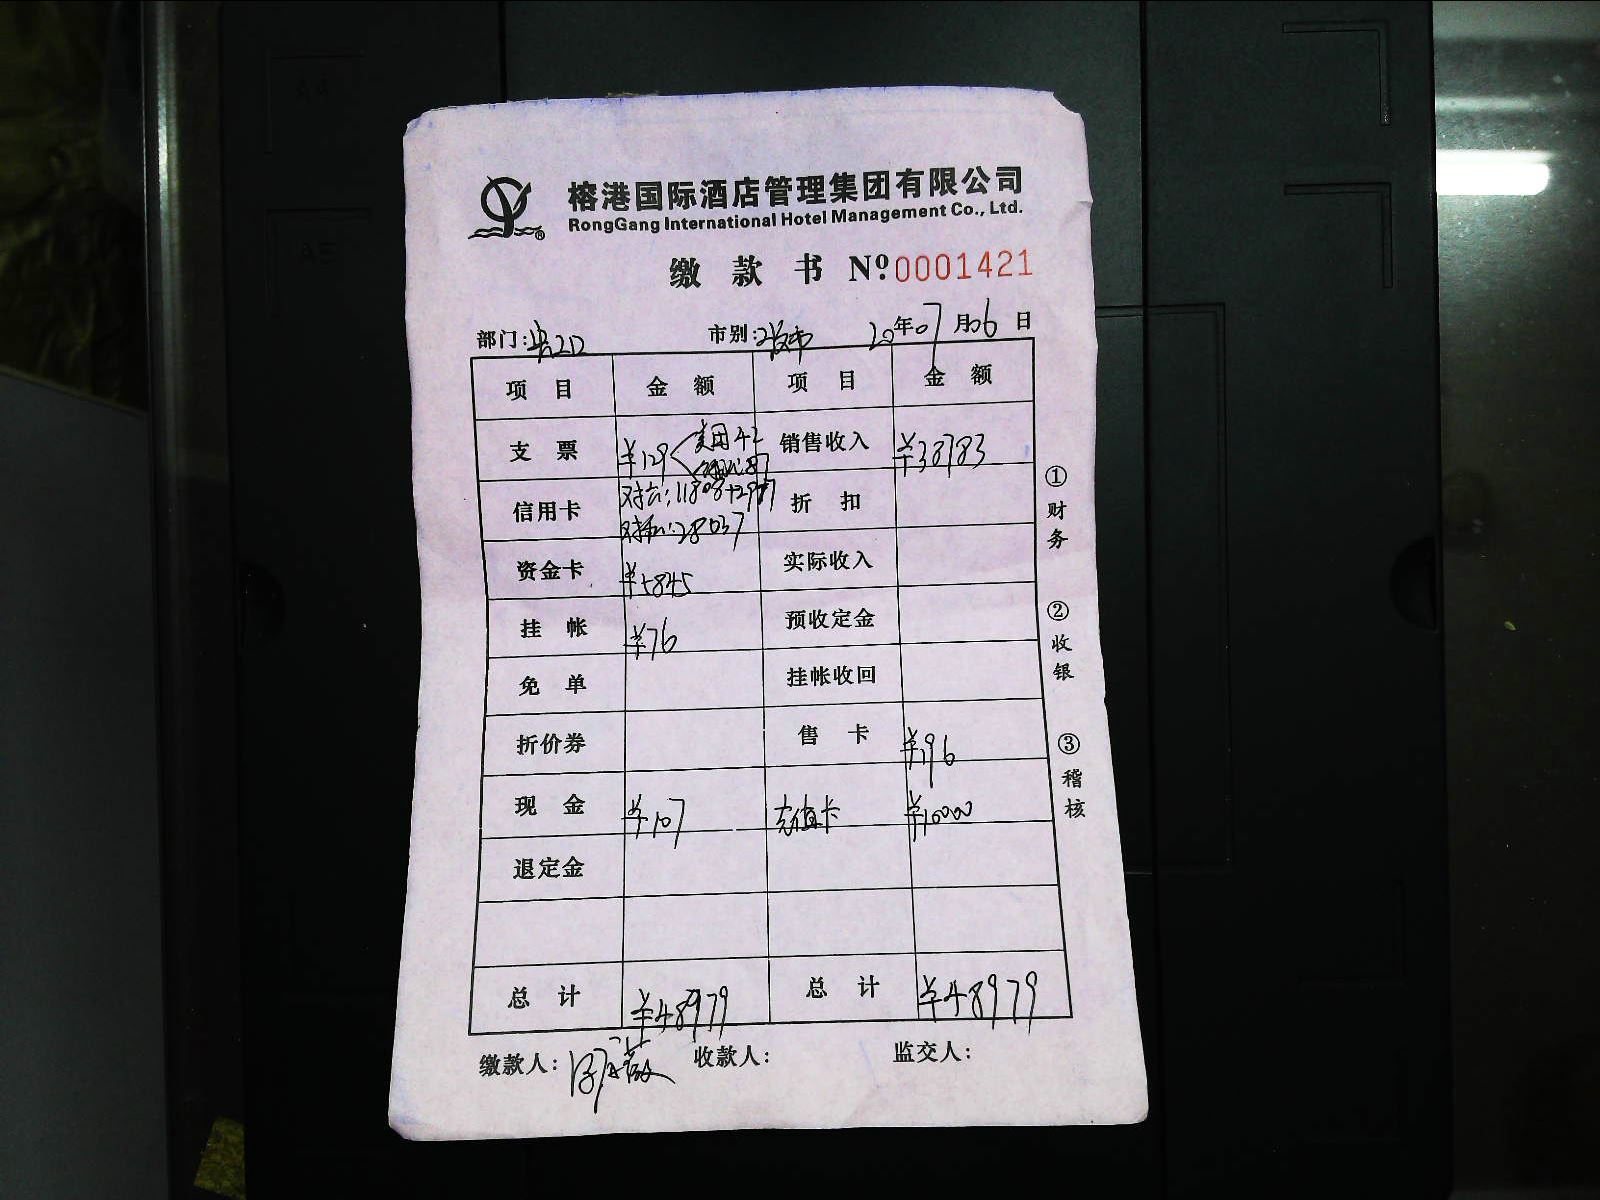 榕港国际酒店管理集团有限公司
RongGang International Hotel Management Co., Ltd.
缴 款 书 Nº 0001421
部门: 市别: 20年07月06日
项 目 金 额 项 目 金 额
支 票 ¥129 美团42 87 销售收入 ¥38783
信用卡 对公:11808+2977 对私:28037 折 扣
资金卡 ¥5845 实际收入
挂 帐 ¥76 预收定金
免 单 挂帐收回
折价券 售 卡 ¥196
现 金 ¥107 充值卡 ¥10000
退定金
总 计 ¥48979 总 计 ¥48979
缴款人: 收款人: 监交人:
①财务 ②收银 ③稽核